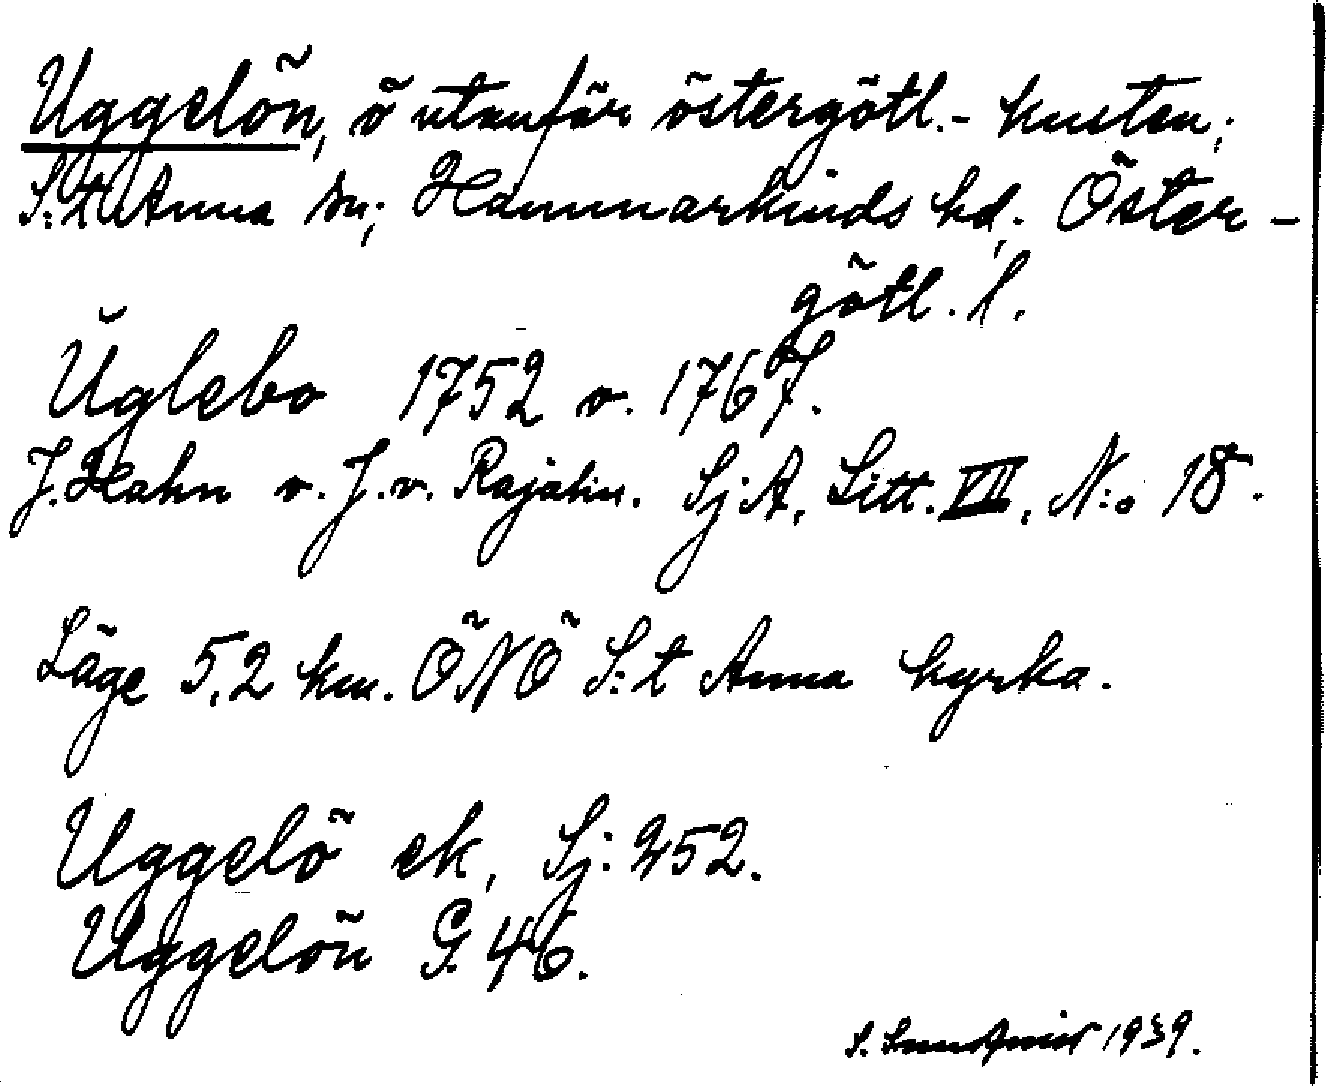 Uggelön, ö utanför östergötl.- kusten;
S:t Anna sn; Hammarkinds hd; Öster-
götl. l.
Uglebo 1752 o. 1767.
J. Hahn o. J. v. Rajalin. Sj A, Litt. VII, N:o 18.
Läge 5,2 km. ÖNÖ S:t Anna kyrka.
Uggelö ek, Sj: 252.
Uggelön G. 46.
S. 1939.